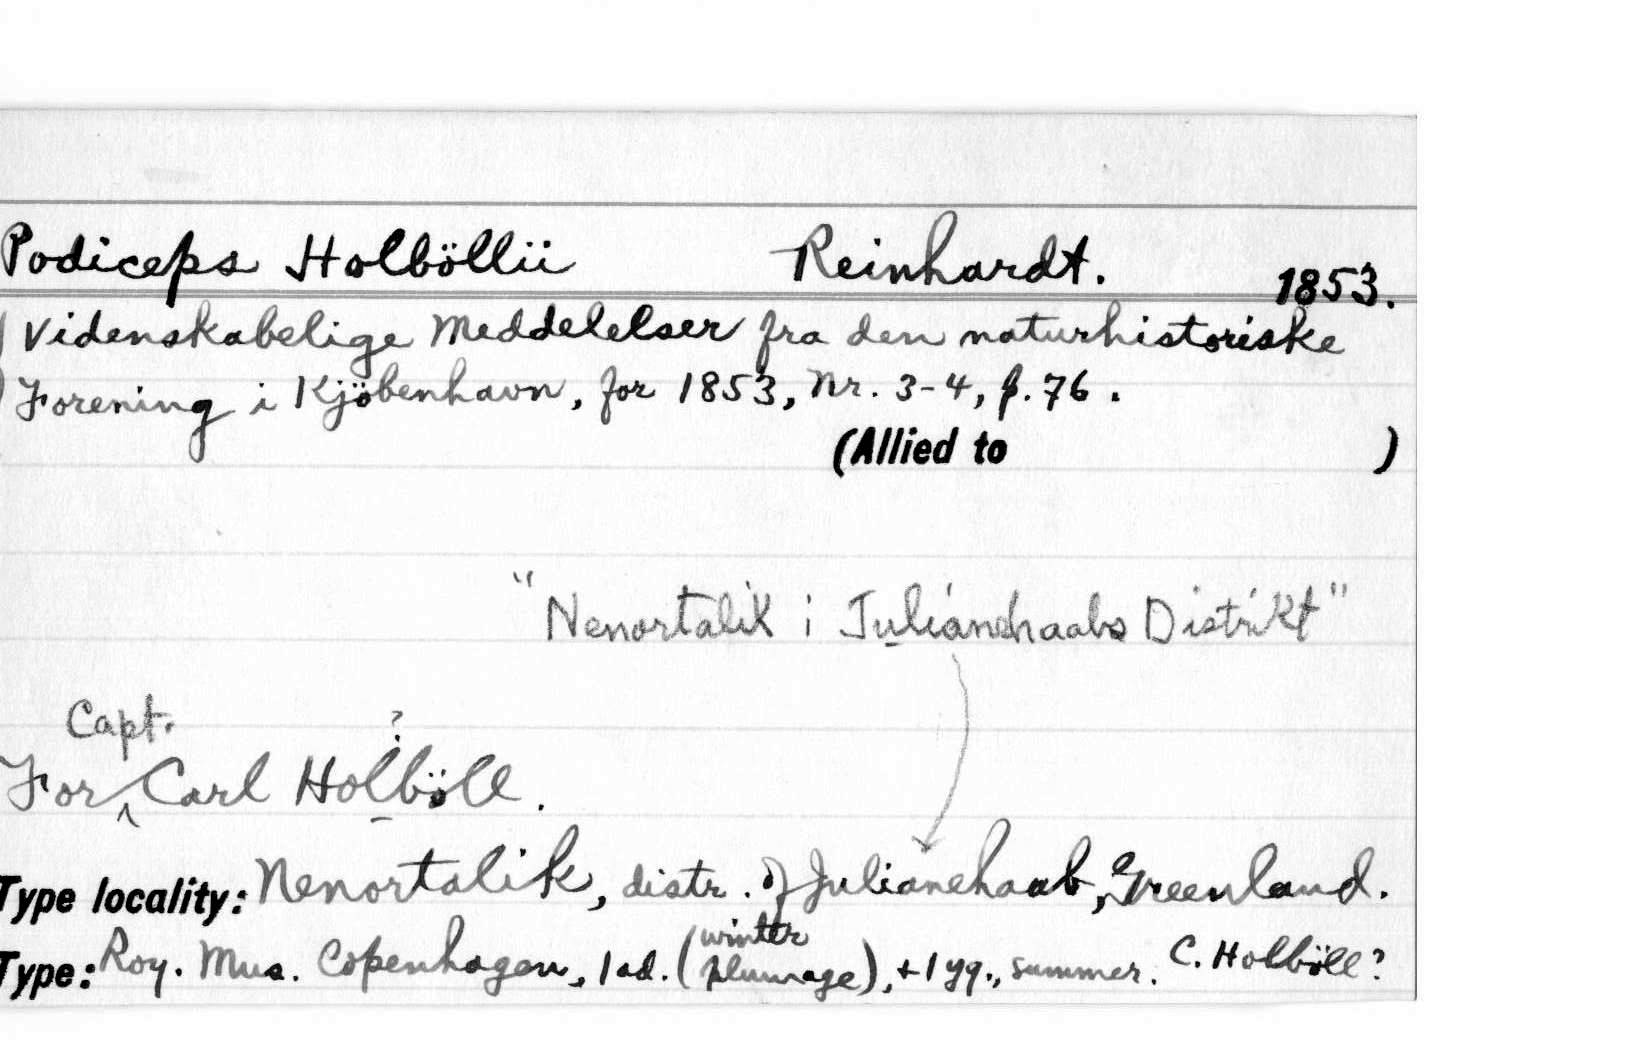 Podiceps Holböllii Reinhardt. 1853.
Videnskabelige Meddelelser fra den naturhistoriske
Forening i Kjöbenhavn, for 1853, Nr. 3-4, p. 76.
(Allied to )
"Nenortalik i Julianehaabs Distrikt"
Capt.
?
For ^ Carl Holböll.
Type locality: Nenortalik, distr. of Julianehaab, Greenland.
Type: Roy. Mus. Copenhagen, 1 ad. (winter plumage), + 1 yg., summer. C. Holböll?